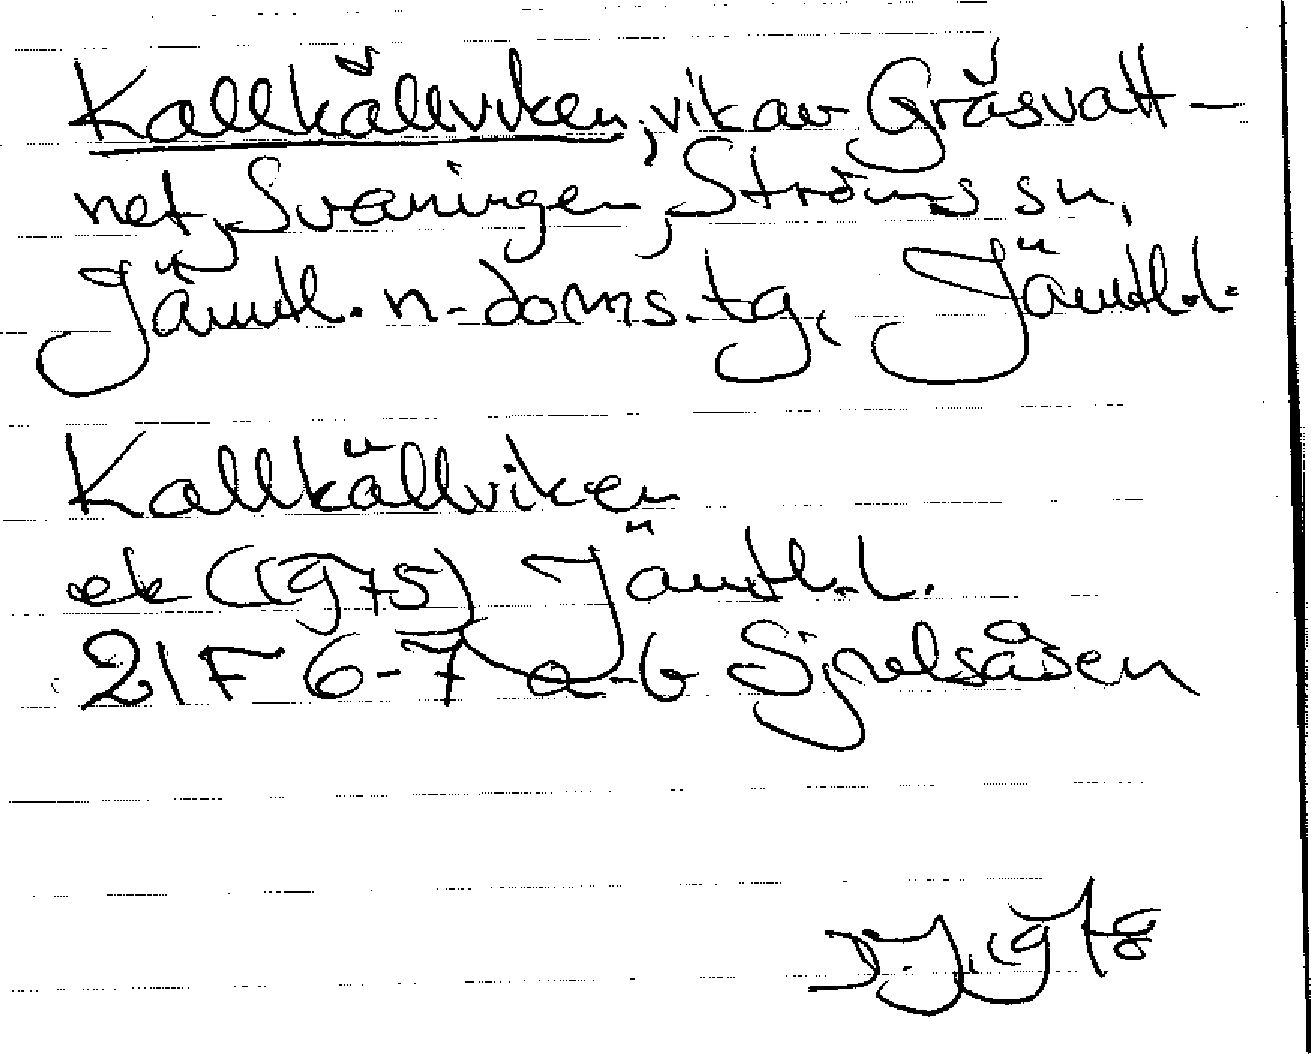 Kallkällviken, vik av Gräsvatt-
net, Svaningen, Ströms sn,
Jämtl. n. doms. tg, Jämtl.l.
Kallkällviken
ek (1975) Jämtl.l.
21F 6-7 a-b Sjoelsåsen
D.J. 1978